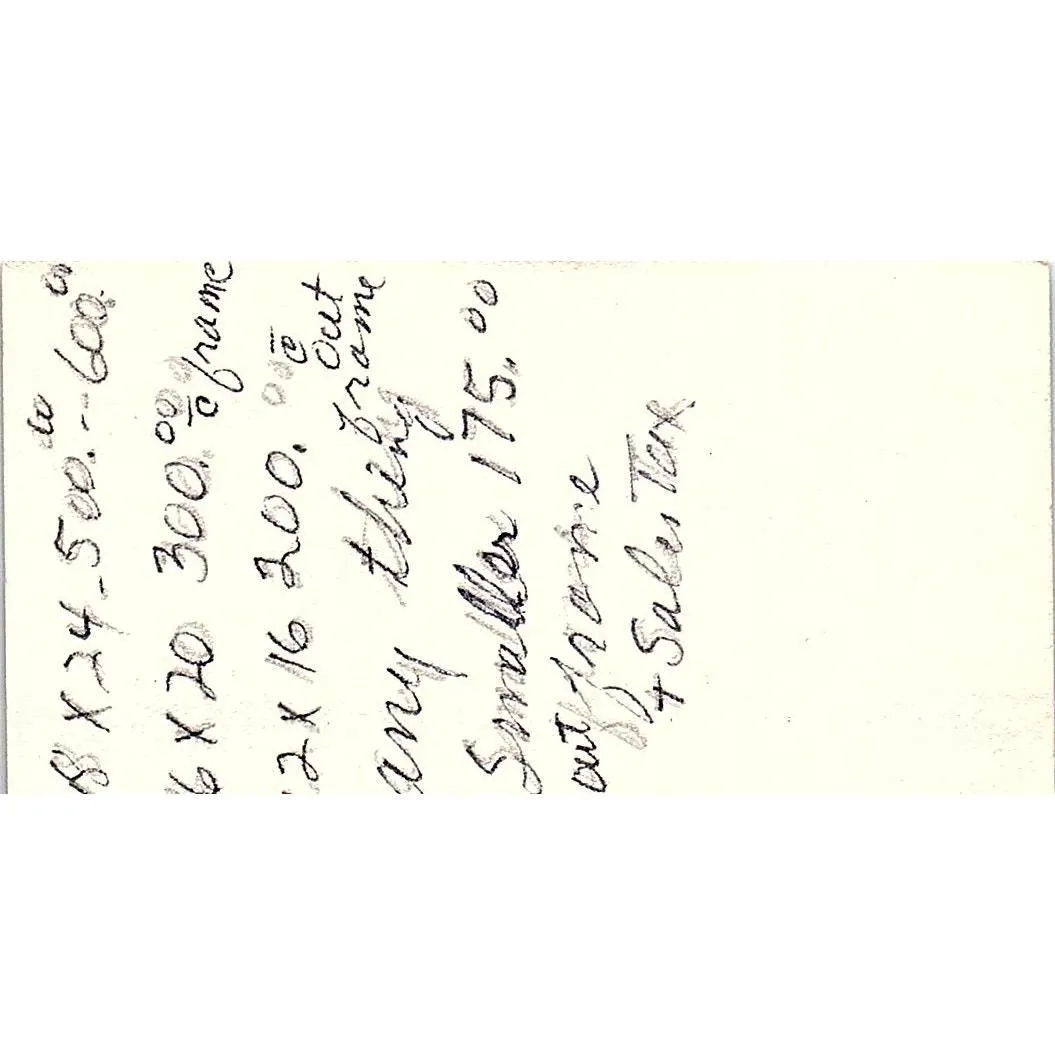 8 X 24 - 500.00 - 600.00
6 X 20 300.00 c̄ frame
2 X 16 200.00 c̄ out frame
any thing
Smaller 175.00
out frame
+ Sales Tax